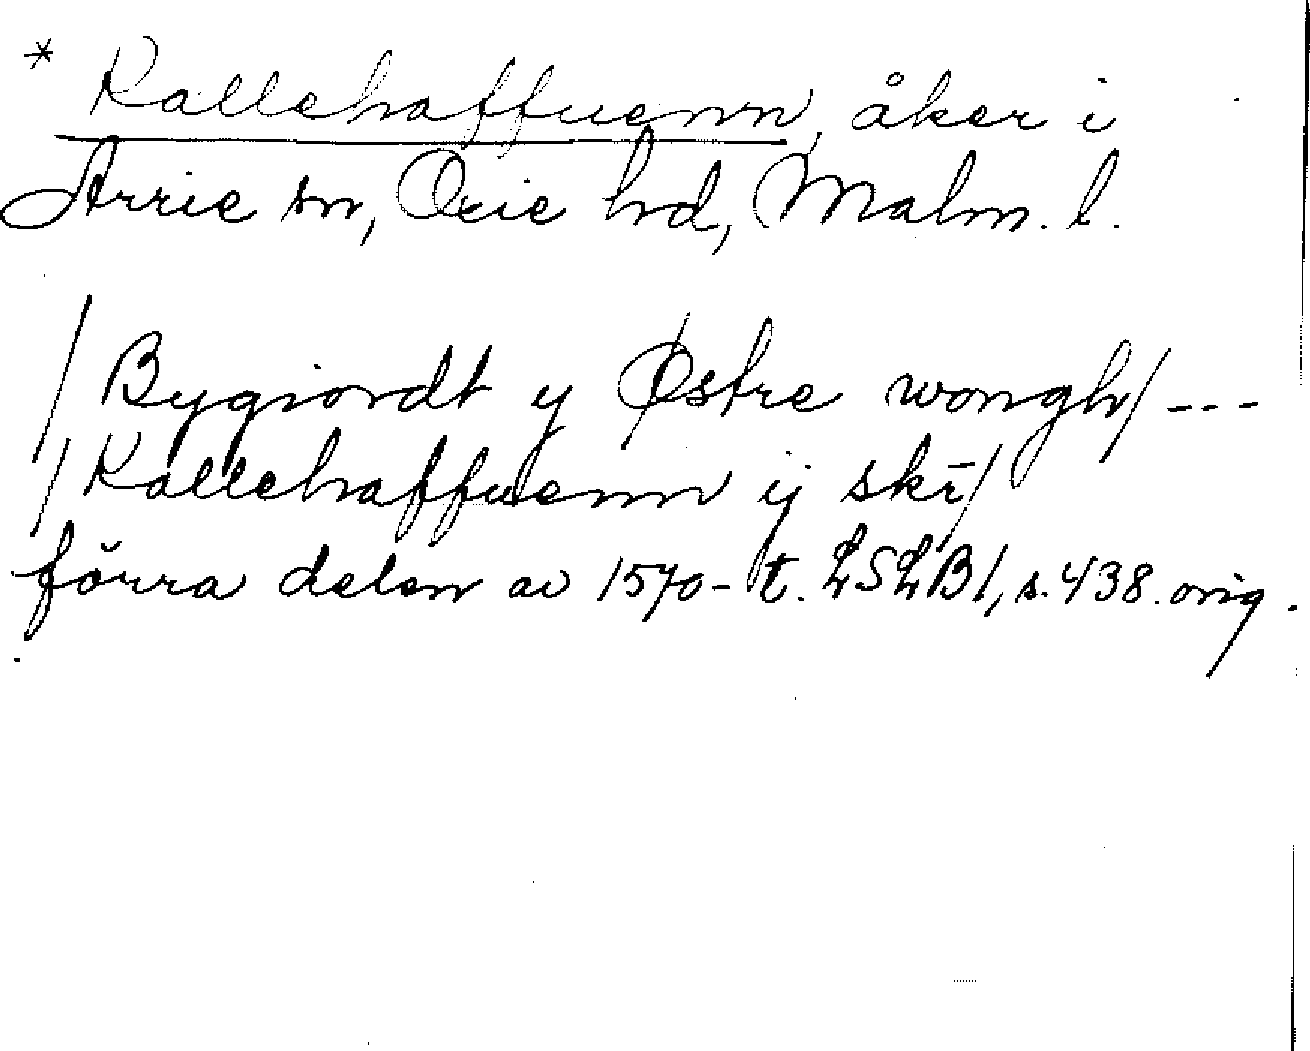 * Kallehaffuenn, åker i
Arrie sn, Oxie hd, Malm. l.
/Bygiordt y Østre wongh/ ---
/Kallehaffuenn ij skr̄/
förra delen av 1570-t. LSLB1, s. 438. orig.